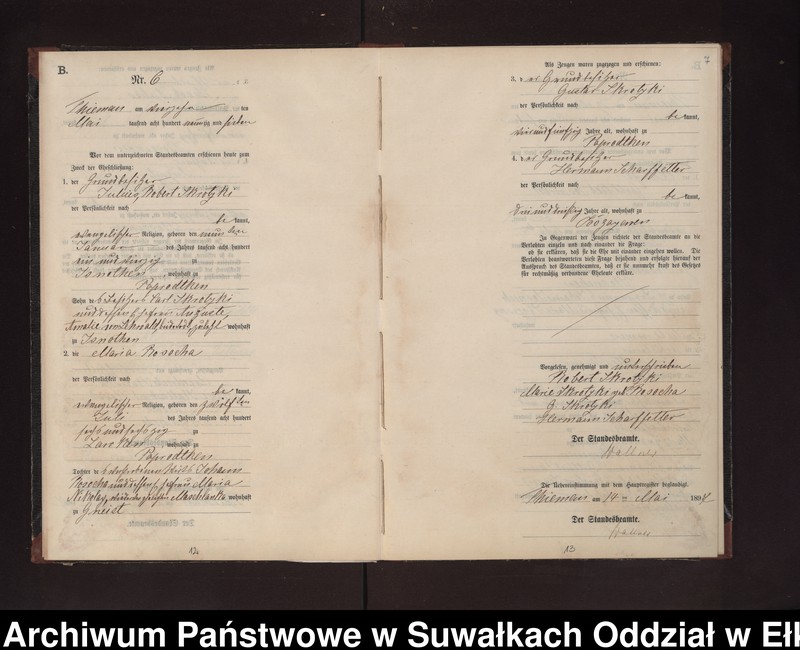 B.
Nr. 6
Thiemau am dreizehnten
Mai tausend acht hundert neunzig und sieben
Vor dem unterzeichneten Standesbeamten erschienen heute zum
Zweck der Eheschließung:
1. der Grundbesitzer
Julius Robert Skrotzki
der Persönlichkeit nach
bekannt,
evangelischer Religion, geboren den neunten
Januar des Jahres tausend acht hundert
ein und vierzig zu
Isnothen, wohnhaft zu
Poprodtken
Sohn des Besitzers Karl Skrotzki
und dessen Ehefrau
Amalie wohnhaft
zu Isnothen
2. die Maria Rosocha
der Persönlichkeit nach
bekannt,
evangelischer Religion, geboren den zwölften
Juli des Jahres tausend acht hundert
sechs und sechszig zu
wohnhaft zu
Poprodtken
Tochter des verstorbenen Johann
Rosocha und dessen Ehefrau Maria
wohnhaft
zu Gneist
12
7
Als Zeugen waren zugezogen und erschienen:
3. der Grundbesitzer
Gustav Skrotzki
der Persönlichkeit nach
bekannt,
vierundfünfzig Jahre alt, wohnhaft zu
Poprodtken
4. der Grundbesitzer
Hermann Scharffetter
der Persönlichkeit nach
bekannt,
dreiunddreißig Jahre alt, wohnhaft zu
In Gegenwart der Zeugen richtete der Standesbeamte an die
Verlobten einzeln und nach einander die Frage:
ob sie erklären, daß sie die Ehe mit einander eingehen wollen. Die
Verlobten beantworteten diese Frage bejahend und erfolgte hierauf der
Ausspruch des Standesbeamten, daß er sie nunmehr kraft des Gesetzes
für rechtmäßig verbundene Eheleute erkläre.
Vorgelesen, genehmigt und unterschrieben
Robert Skrotzki
Marie Skrotzki geb. Rosocha
G. Skrotzki
Hermann Scharffetter
Der Standesbeamte.
Die Uebereinstimmung mit dem Hauptregister beglaubigt.
am 14ten Mai 1897
Der Standesbeamte.
13
Archiwum Państwowe w Suwałkach Oddział w Ełk